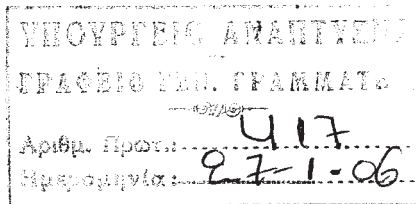 ΥΠΟΥΡΓΕΙΟ ΑΝΑΠΤΥΞΗΣ
ΓΡΑΦΕΙΟ ΓΕΝ. ΓΡΑΜΜΑΤΕ
Αριθμ. Πρωτ.: 417
Ημερομηνία: 27-1-06